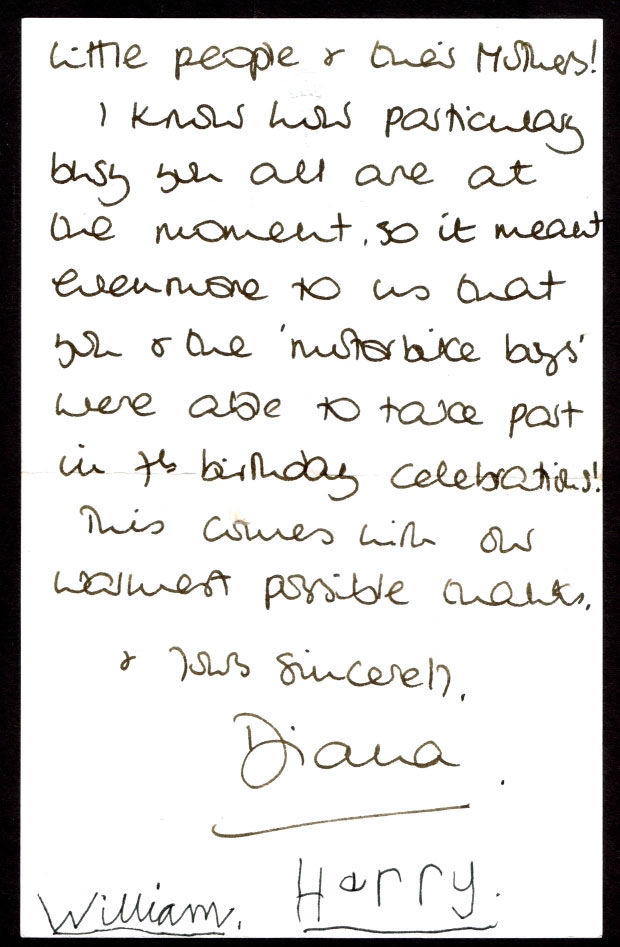 little people & their Mothers!
I know how particulary
busy you all are at
the moment, so it meant
even more to us that
you & the 'motorbike boys'
were able to take part
in 7th birthday celebrations!
This comes with our
warmest possible thanks.
& Yours sincerely,
Diana.
William. Harry.